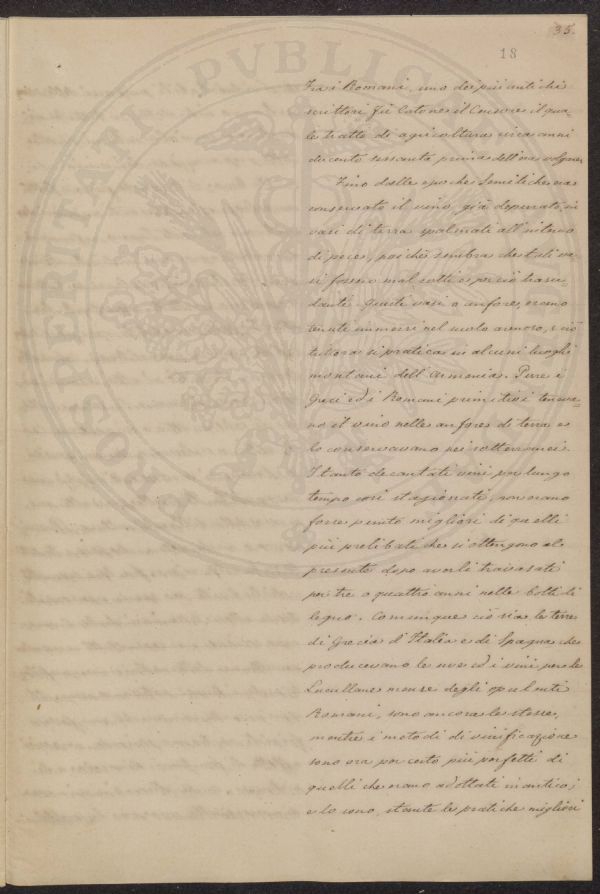 35.
18
Fra i Romani, uno dei più antichi
scrittori fù Catone il Censore il qua-
le trattò di agricoltura circa anni
duecento sessanta prima dell'era volgare
Fino dalle epoche Semitiche era
conservato il vino, già depurato, in
vasi di terra spalmati all'interno
di pece, poichè sembra che tali va-
si fossero mal cotti e perciò trasu-
danti. Questi vasi o anfore, erano
tenuti immersi nel suolo arenoso, e ciò
tuttora si pratica in alcuni luoghi
montani dell'Armenia. Pure i
Greci ed i Romani primitivi teneva-
no il vino nelle anfore di terra e
lo conservavano nei sotterranei.
I tanto decantati vini per lungo
tempo così stagionati, non erano
forse punto migliori di quelli
più prelibati che si ottengono al
presente dopo averli travasati
per tre o quattro anni nelle botti di
legno. Comunque ciò sia le terre
di Grecia d'Italia e di Spagna che
producevano le uve ed i vini per le
Lucullane mense degli opulenti
Romani, sono ancora le stesse,
mentre i metodi di vinificazione
sono ora per certo più perfetti di
quelli che erano adottati in antico;
e lo sono, stante le pratiche migliori
PROSPERITATI PUBLIC